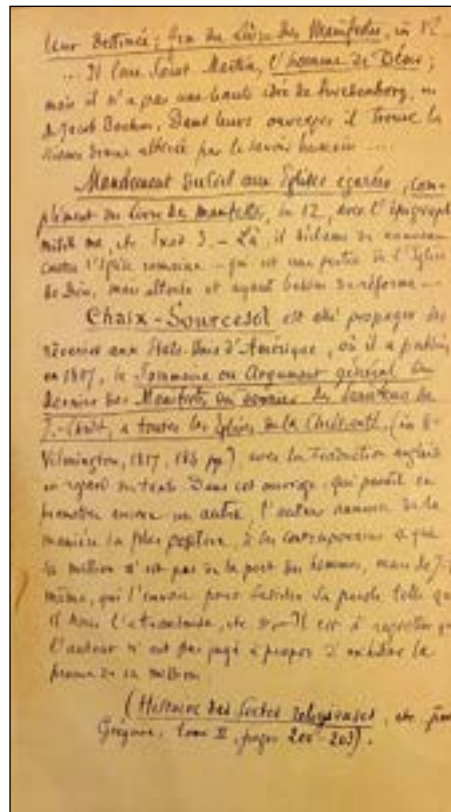 leur destinée ; fin du Livre des Manifestes, in 12
... Il loue Saint Martin, l'homme de Désir ;
mais il n'a pas une haute idée de Swedenborg, ni
de Jacob Boehm. Dans leurs ouvrages il trouve la
science divine altérée par le savoir humain ...
Mandement du Ciel aux Eglises égarées, com-
plément du Livre de manifestes, in 12, avec l'épigraphe
misit me, etc Exod 3. - Là, il déclame de nouveau
contre l'Eglise romaine - qui est une partie de l'Eglise
de Dieu, mais altérée et ayant besoin de réforme -
Chaix-Sourcesol est allé propager ses
rêveries aux Etats-Unis d'Amérique, où il a publié
en 1817, le Sommaire ou Argument général du
dernier des Manifestes ou
J.-Christ, a toutes les Eglises de la Chrétienté. (in 8-
Wilmington, 1817, pp.), avec la traduction anglaise
en regard du texte. Dans cet ouvrage, qui paraît en
promettre encore un autre, l'auteur annonce de la
manière la plus positive, à ses contemporains « que
sa mission n'est pas de la part des hommes, mais de J-C
même, qui l'envoie pour la parole telle qu'
il nous l'a transmise, etc ». - Il est à regretter que
l'auteur n'ait pas jugé à propos d'exhiber la
preuve de sa mission.
(Histoire des Sectes religieuses, etc par
Grégoire, tome II, pages 200-203).